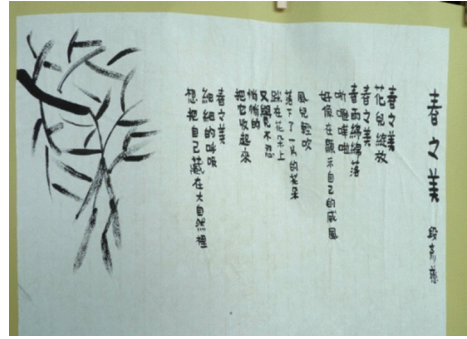 春之美
春之美
花兒綻放
春之美
春雨綿綿落
唏哩嘩啦
好像在顯示自己的威風
風兒輕吹
落下了一片的花朵
踩在花朵上
又覺不忍
悄悄的
把它收起來
春之美
細細的呼吸
想把自己藏在大自然裡